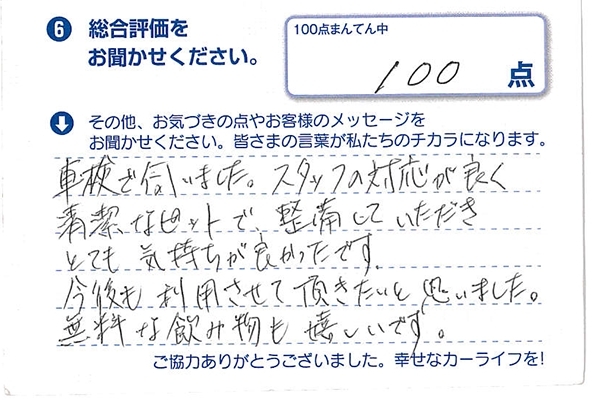 6 総合評価を
お聞かせください。
100点まんてん中
100 点
その他、お気づきの点やお客様のメッセージを
お聞かせください。皆さまの言葉が私たちのチカラになります。
車検で伺いました。スタッフの対応が良く
清潔なピットで、整備していただき
とても気持ちが良かったです。
今後も利用させて頂きたいと思いました。
無料な飲み物も嬉しいです。
ご協力ありがとうございました。幸せなカーライフを!